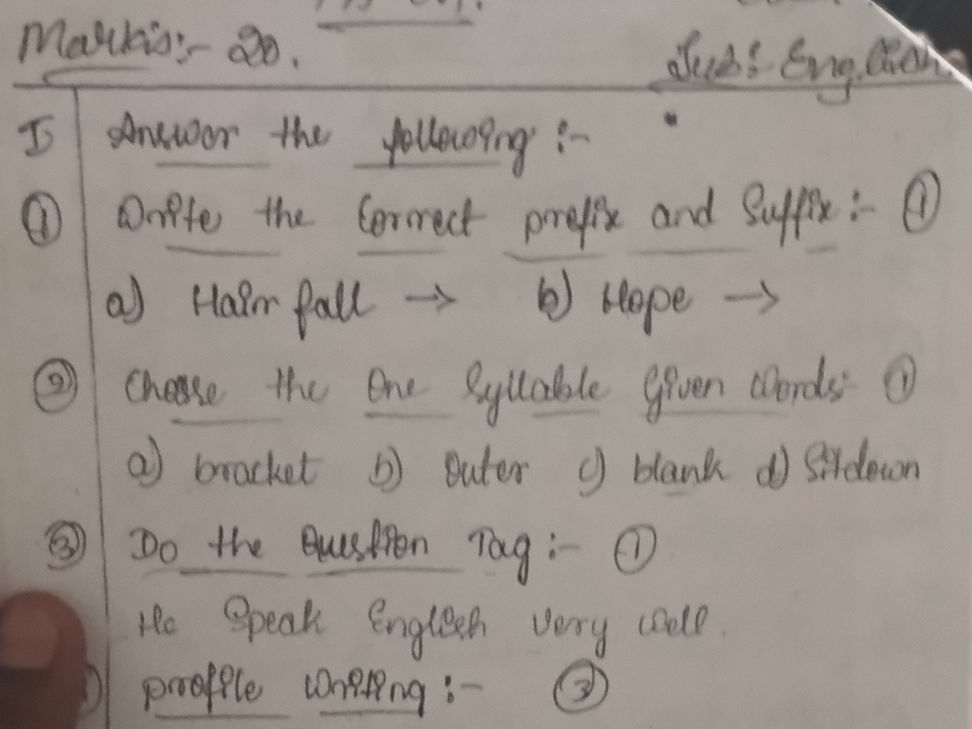 Marks:- 20.
Sub: English.
I Answer the following :-
① Write the correct prefix and Suffix :- ①
a) Hair fall → b) Hope →
② Choose the One Syllable Given Words:- ①
a) bracket b) Outer c) blank d) Sitdown
③ Do the Question Tag :- ①
He Speak English very well.
profile writing :- ③